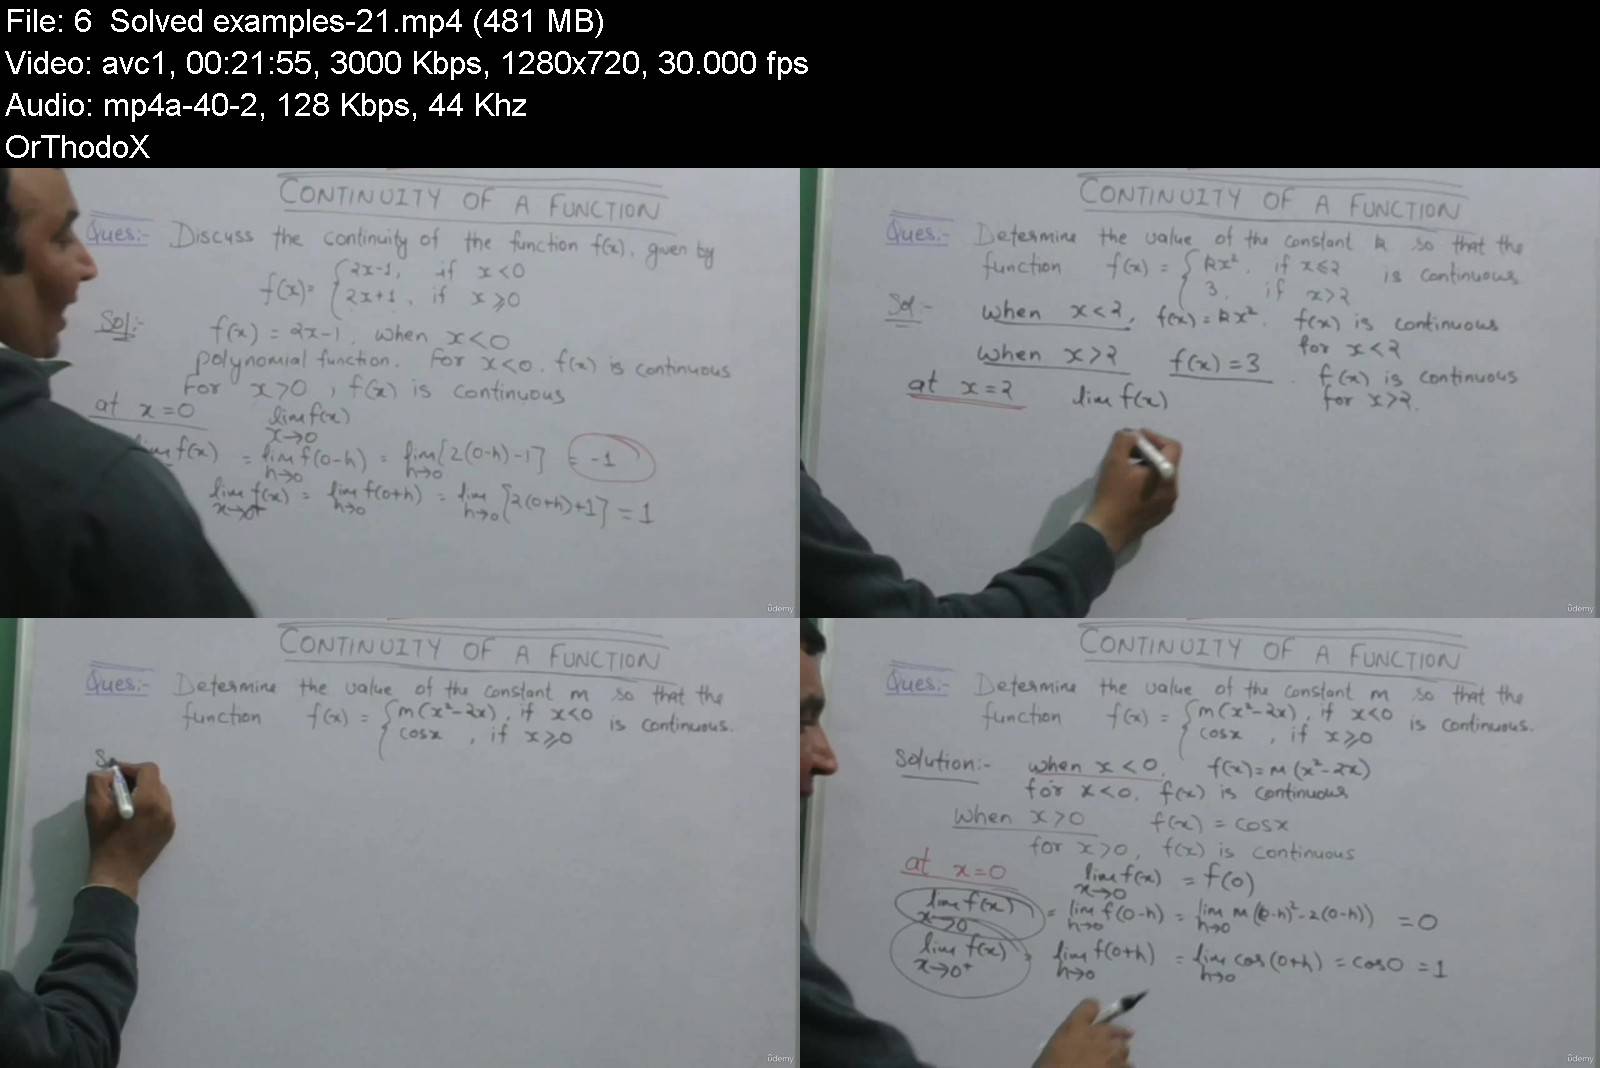 File: 6  Solved examples-21.mp4 (481 MB)
Video: avc1, 00:21:55, 3000 Kbps, 1280x720, 30.000 fps
Audio: mp4a-40-2, 128 Kbps, 44 Khz
OrThodoX
CONTINUITY OF A FUNCTION
Ques:- Discuss the continuity of the function f(x), given by
f(x)= { 2x-1, if x<0
2x+1, if x⩾0
Sol:- f(x) = 2x-1, when x<0
polynomial function. For x<0, f(x) is continuous
For x>0, f(x) is continuous
at x=0 lim f(x)
x→0
f(x) = lim f(0-h) = lim [2(0-h)-1] = -1
h→0 h→0
lim f(x) = lim f(0+h) = lim [2(0+h)+1] = 1
x→0+ h→0 h→0
udemy
CONTINUITY OF A FUNCTION
Ques:- Determine the value of the constant k so that the
function f(x) = { kx², if x⩽2 is continuous
3, if x>2
Sol:- when x<2, f(x)=kx². f(x) is continuous
for x<2
when x>2 f(x)=3. f(x) is continuous
for x>2.
at x=2 lim f(x)
udemy
CONTINUITY OF A FUNCTION
Ques:- Determine the value of the constant m so that the
function f(x) = { m(x²-2x), if x<0 is continuous.
cosx, if x⩾0
S
udemy
CONTINUITY OF A FUNCTION
Ques:- Determine the value of the constant m so that the
function f(x) = { m(x²-2x), if x<0 is continuous.
cosx, if x⩾0
Solution:- when x<0, f(x)=m(x²-2x)
for x<0, f(x) is continuous
when x>0 f(x) = cosx
for x>0, f(x) is continuous
at x=0 lim f(x) = f(0)
x→0
lim f(x) = lim f(0-h) = lim m((0-h)²-2(0-h)) = 0
x→0 h→0 h→0
lim f(x) = lim f(0+h) = lim cos(0+h) = cos0 = 1
x→0+ h→0 h→0
udemy